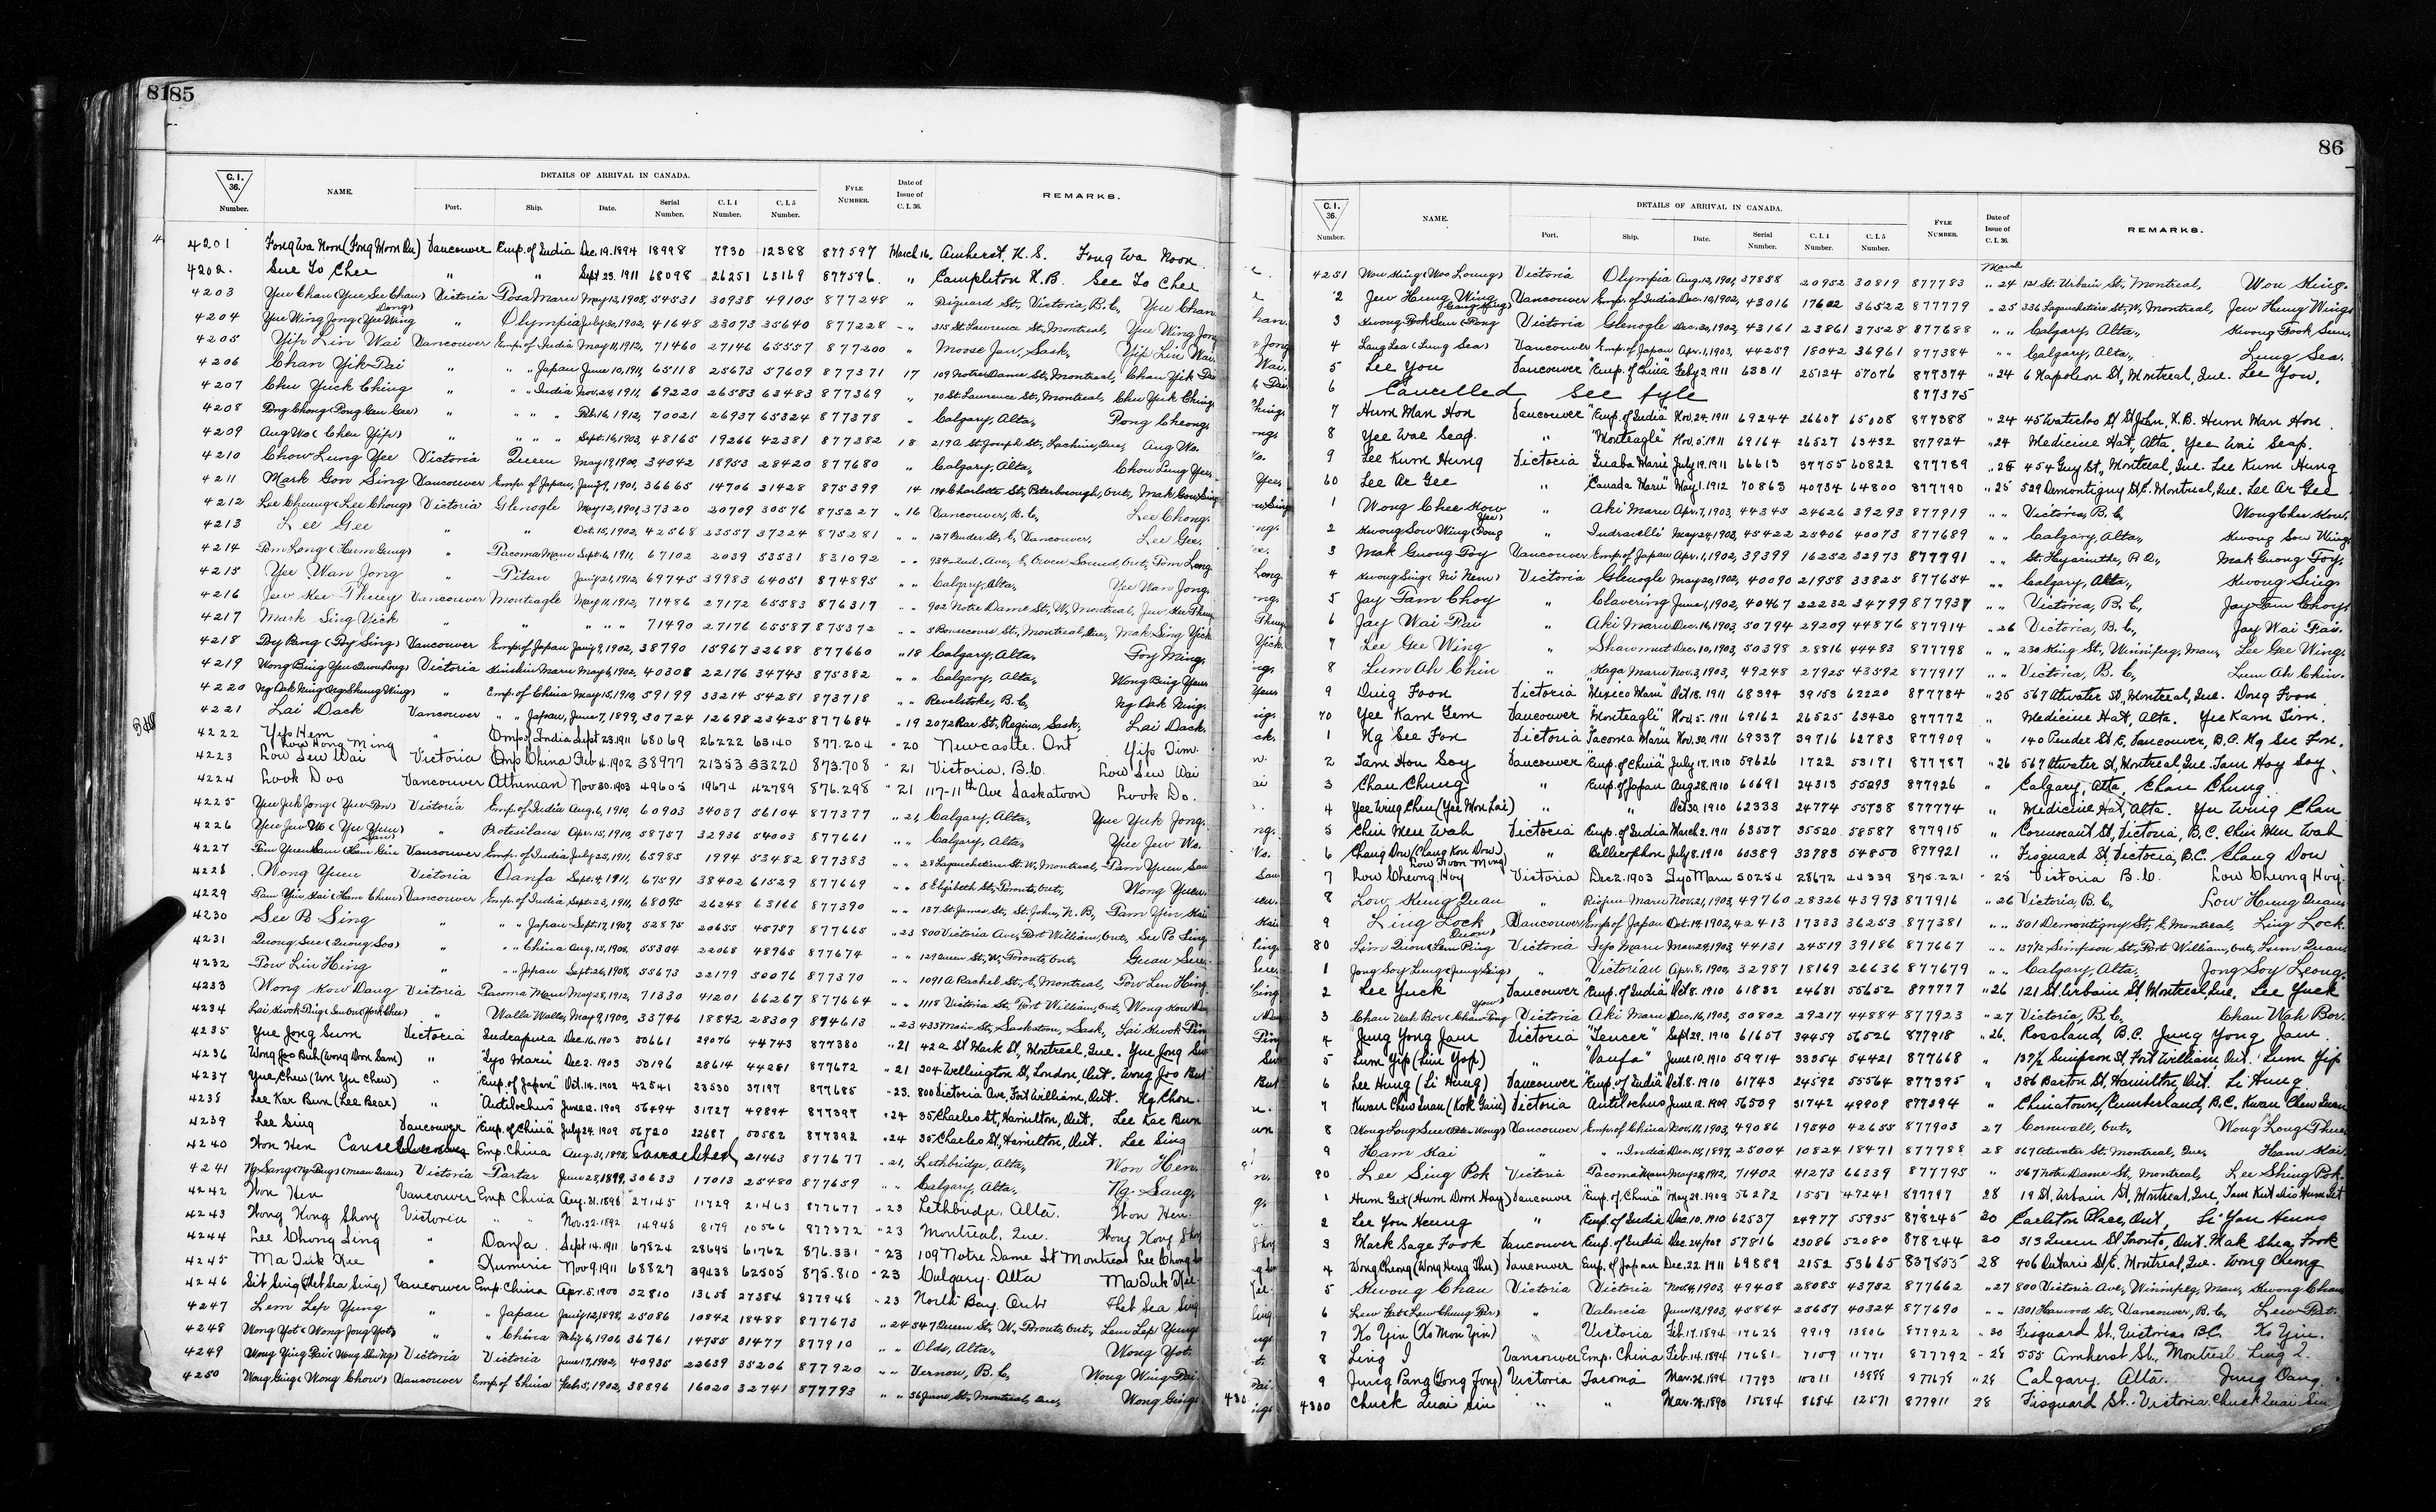 8185
C. I. 36. Number. NAME. DETAILS OF ARRIVAL IN CANADA. Port. Ship. Date. Serial Number. C. I. 4 Number. C. I. 5 Number. FYLE NUMBER. Date of Issue of C. I. 36. REMARKS.
4201 Fong Wa Noon Vancouver Emp. of India Dec. 19. 1894 18998 7730 12388 877597 March 16. Amherst, N. S. Fong Wa Noon
4202. Sue To Chee " " Sept 23. 1911 68098 26251 63169 877596 " Campleton N.B. See To Chee
4203 Yue Chan (Yue See Chan) Victoria Tosa Maru May 12, 1908, 54531 30938 49105 877248 " Fisguard St., Victoria, B.C., Yue Chan
4204 Yue Wing Jong (Yue Wing Dong) " Olympia July 20, 1902, 41648 23073 35640 877228 " 315 St. Lawrence St., Montreal, Yue Wing Jong
4205 Yip Lin Wai Vancouver Emp. of India May 11, 1912, 71460 27146 65557 877200 " Moose Jaw, Sask., Yip Lin Wai
4206 Chan Yik Pai " " " Japan June 10, 1911, 65118 25673 57609 877371 17 109 Notre Dame St., Montreal, Chan Yik Pai
4207 Chu Yuck Ching " " " India Nov. 24, 1911, 69220 26583 63483 877369 " 70 St. Lawrence St., Montreal, Chu Yuk Ching
4208 " " " " Feb. 16, 1912, 70021 26937 65324 877378 " Calgary, Alta., Pong Cheong
4209 Aug Wo (Cheu Yip) " " " " Sept. 16, 1903, 48165 19266 42381 877382 18 219A St. Joseph St., Lachine, Que., Aug Wo.
4210 Chow Lung Yee Victoria Queen May 17, 1900, 34042 18953 28420 877680 " Calgary, Alta., Chow Lung Yee
4211 Mark Gon Sing Vancouver Emp. of Japan, Jany 9, 1901, 36665 14706 31428 875399 14 194 Charlotte St., Peterborough, Ont., Mak Gon Sing
4212 Lee Cheung (Lee Chong) Victoria Glenogle May 12, 1901, 37320 20709 30576 875227 " 16 Vancouver, B.C., Lee Chong.
4213 Lee Gee " " Oct. 15, 1902, 42568 23557 37224 875281 " " 127 Pender St., E, Vancouver, Lee Gee.
4214 Tom Long (Hum Gung) " Tacoma Maru Sept. 6, 1911, 67102 2039 53531 831092 " " 934 2nd. Ave., E, Owen Sound, Ont., Tom Long
4215 Yee Wan Jong " Titan Jany 21, 1912, 69745 39983 64051 874895 " " Calgary, Alta., Yee Wan Jong.
4216 Jew Kee Thuey Vancouver Monteagle May 11, 1912, 71486 27172 65583 876317 " " 902 Notre Dame St., W., Montreal, Jew Kee Thuey
4217 Mark Sing Yick " " " " " 71490 27176 65587 875372 " " 5 Bonsecours St., Montreal, Que., Mak Sing Yick
4218 Vancouver Emp. of Japan Jany 9, 1902, 38790 15967 32688 877660 " 18 Calgary, Alta., Foy Ming.
4219 Wong Bing Yeu Victoria Kinshiu Maru May 6, 1902, 40308 22176 34743 875382 " " Calgary, Alta., Wong Bing Yeu
4220 Ng Dak Ning (Ng Shung Wing) " Emp. of China May 15, 1910, 59199 33214 54281 873718 " " Revelstoke, B.C., Ng Dak Ning.
4221 Lai Dack Vancouver " " Japan, June 7, 1899, 30724 12698 23425 877684 " 19 2072 Rae St., Regina, Sask., Lai Dack.
4222 Yip Hem " Emp of India Sept 23. 1911 68069 26222 63140 877.204 " 20 Newcastle. Ont Yip Tim.
4223 Low Sew Wai Low Hong Ming Victoria Emp China Feb 4. 1902 38977 21353 33220 873.708 " 21 Victoria. B.C. Low Sew Wai
4224 Look Doo Vancouver Athenian Nov 30. 1903 49605 19674 42789 876.298 " 21 117-11th Ave Saskatoon Look Do.
4225 Yue Juk Jong Victoria Emp. of India Aug. 6, 1910, 60903 34037 56104 877377 " 21, Calgary, Alta., Yue Yuk Jong.
4226 Yue Jew Wo (Yu Yuen) " Protesilaus Apr. 15, 1910, 58757 32936 54003 877661 " " Calgary, Alta., Yue Jew Wo.
4227 Vancouver Emp. of India July 25, 1911, 65985 1994 53482 877383 " " 28 Lagauchetiere St. W., Montreal, Tam Yuen Sau
4228 Wong Yuen Victoria Oanfa Sept. 4, 1911, 67591 38402 61529 877669 " " 8 Elizabeth St., Toronto, Ont., Wong Yuen.
4229 Tam Yin Kai Vancouver Emp. of India Sept. 23, 1911, 68095 26248 63166 877390 " " 137 St. James St., St. John, N.B., Tam Yin Kai
4230 See B Sing " " " Japan Sept. 17, 1907, 52875 20655 45757 877665 " 23 800 Victoria Ave., Fort William, Ont., See Po Sing
4231 Quong Sue (Quong Soo) " " " China Aug. 15, 1908, 55304 22068 48965 877674 " " 129 Queen St., W., Toronto, Ont.,
4232 Tow Lin Hing " " " Japan Sept. 26, 1908, 55673 22179 50076 877370 " " 1091A Rachel St., E, Montreal, Tow Len Hing
4233 Wong Kow Dang Victoria Tacoma Maru May 28, 1912, 71330 41201 66267 877664 " " 1118 Victoria St., Fort William, Ont., Wong Kow Dang
4234 " Walla Walla, May 9, 1900, 33746 18842 28309 894613 " 23 433 Main St., Saskatoon, Sask., Lai Kwok Pin
4235 Yue Jong Sum Victoria Indrapura Dec. 16. 1903 50661 29076 44743 877380 " 21 42a St Mark St, Montreal, Que. Yue Jong Sum
4236 Wong Joo Buh (Wong Doon Sam) " "Iyo Maru" Dec 2. 1903 50196 28614 44281 877672 " 21 204 Wellington St, London, Ont. Wong Joo But
4237 Yue Chew " "Emp. of Japan" Oct. 14. 1902 42541 23530 37197 877685 " 23. 800 Victoria Ave, Fort William, Ont. Ng Chou.
4238 Lee Kar Bun (Lee Bear) " "Antilochus" June 12. 1909 56494 31727 49894 877397 " 24 35 Charles St, Hamilton, Ont. Lee Kar Bun
4239 Lee Sing Vancouver "Emp. of China" July 24. 1909 56720 22687 50582 877392 " 24 35 Charles St, Hamilton, Ont. Lee Sing
4240 Won Hen Cancelled Emp. China Aug. 31, 1898, Cancelled 21463 877677 " 21, Lethbridge, Alta., Won Hen.
4241 Victoria Tartar June 28, 1899, 30633 17013 25480 877659 " " Calgary, Alta., Ng. Sang.
4242 Won Hen Vancouver Emp China Aug. 31. 1898 27145 11729 21463 877677 " 23 Lethbridge. Alta. Won Hen.
4243 Wong Kong Shong Victoria " " Nov. 22. 1892 14948 8179 10566 877372 " 23 Montreal. Que. Wong Kong Shong
4244 Lee Chong Sing " Oanfa. Sept 14. 1911 67824 28645 61762 876.331 " 23 109 Notre Dame St Montreal Lee Chong Sing
4245 Ma Tuk Kee " Kumeric Nov 9. 1911 68827 39438 62505 875.810 " 23 Calgary. Alta Ma Tuk Kee
4246 Sit Sing (Thet Sea Sing) Vancouver Emp. China Apr. 5. 1900 32810 13658 27384 877948 " 23 North Bay. Ont Thet Sea Sing
4247 Lem Lep Yung " " Japan Jany 12, 1898, 25086 10842 18488 877673 " 24 547 Queen St., W., Toronto, Ont., Lem Lep Yung
4248 Wong Yot (Wong Jong Yot) " " China Feby 6, 1906 36761 14755 31477 877910 " " Olds, Alta., Wong Yot.
4249 Wong Ying Pai Victoria Victoria June 17, 1902, 40935 22639 35206 877920 " " Vernon, B.C., Wong Wing Pai
4250 Wong Ging (Wong Chow) Vancouver Emp of China Feb. 5, 1902, 38896 16020 32741 877793 " " Montreal, Que., Wong Ging
86
C. I. 36. Number. NAME. DETAILS OF ARRIVAL IN CANADA. Port. Ship. Date. Serial Number. C. I. 4 Number. C. I. 5 Number. FYLE NUMBER. Date of Issue of C. I. 36. REMARKS.
4251 Wou King (Woo Loung) Victoria Olympia Aug. 12, 1901, 37858 20952 30819 877783 March " 24 121 St. Urbain St., Montreal, Wou King.
2 Jew Hung Wing Vancouver Emp. of India Dec. 10, 1902, 43016 17602 36522 877779 " 25 336 Lagauchetiere St., W., Montreal, Jew Hung Wing
3 Victoria Glenogle Dec. 20, 1902, 43161 23861 37528 877688 " " Calgary, Alta., Kwong Fook Sun
4 Lang Sea (Lung Sea) Vancouver Emp. of Japan Apr. 1, 1903, 44259 18042 36961 877384 " " Calgary, Alta., Lung Sea.
5 Lee You Vancouver "Emp. of China" Feby 2. 1911 63311 25124 57076 877374 " 24 6 Napoleon St, Montreal, Que. Lee You.
6 Cancelled See fyle 877375
7 Hum Man Hon Vancouver "Emp. of India" Nov. 24. 1911 69244 26607 65008 877388 " 24 45 Waterloo St St John, N.B. Hum Man Hon.
8 Yee Wae Seap. " "Monteagle" Nov. 5. 1911 69164 26527 63432 877924 " 24 Medicine Hat, Alta. Yee Wai Seap.
9 Lee Kum Hung Victoria Inaba Maru July 19. 1911 66613 37755 60822 877789 " 25 454 Guy St., Montreal, Que. Lee Kum Hung
60 Lee Ar Gee " "Canada Maru" May 1. 1912 70863 40734 64800 877790 " 25 529 Demontigny St E. Montreal, Que. Lee Ar Gee
1 Wong Chee Kow " Aki Maru Apr. 7, 1903, 44345 24626 39293 877919 " " Victoria, B.C., Wong Chee Kow.
2 Kwong Sow Wing " Indravelli May 24, 1903, 45422 25406 40073 877689 " " Calgary, Alta., Kwong Sow Wing
3 Mak Guong Foy Vancouver Emp. of Japan Apr. 1, 1902, 39399 16252 32973 877791 " " St. Hyacinthe, P.Q., Mak Guong Foy.
4 Victoria Glenogle May 20, 1902, 40090 21958 33825 877654 " " Calgary, Alta., Kwong Sing.
5 Jay Tam Choy " Clavering June 1, 1902, 40467 22232 34799 877937 " " Victoria, B.C., Jay Tam Choy.
6 Jay Wai Pai " Aki Maru Dec. 16, 1903, 50794 29209 44876 877914 " 26 Victoria, B.C., Jay Wai Pai.
7 Lee Gee Wing " Shawmut Dec. 10, 1903, 50398 28816 44483 877798 " " 230 King St., Winnipeg, Man., Lee Gee Wing.
8 Lum Ah Chin " Kaga Maru Nov. 3, 1903, 49248 27925 43592 877917 " " Victoria, B.C., Lum Ah Chin.
9 Ding Foon Victoria "Mexico Maru" Oct 18. 1911 68394 39153 62220 877784 " 25 567 Atwater St, Montreal, Que. Dong Foon
70 Yee Kam Gem Vancouver "Monteagle" Nov. 5. 1911 69162 26525 63430 877772 " Medicine Hat, Alta. Yee Kam Tim.
1 Ng See Fon Victoria "Tacoma Maru" Nov. 30. 1911 69337 39716 62783 877909 " 140 Pender St E, Vancouver, B.C. Ng See Fon.
2 Tam Hou Soy Vancouver "Emp. of China" July 17. 1910 59626 1722 53171 877787 " 26 567 Atwater St, Montreal, Que. Tam Hoy Soy.
3 Chau Chung " "Emp of Japan Aug 28. 1910 60691 24313 55293 877926 " Calgary, Alta. Chau Chung.
4 Yee Wing Cheu (Yee Mon Lai) " " Oct 30. 1910 62333 24774 55738 877774 " Medicine Hat, Alta. Yu Wing Chau
5 Chin Meu Wah Victoria Emp. of India March 2. 1911 63507 35520 58587 877915 " Cormorant St, Victoria, B.C. Chin Men Wah
6 Chang Dow (Chang Kon Dow) " Bellerophon July 8. 1910 60389 33783 54850 877921 " Fisguard St, Victoria, B.C. Chang Dow
7 Low Cheong Hoy Low Foon Mong Victoria Dec 2. 1903 Iyo Maru 50254 28672 44339 875.221 " 25 Victoria B.C. Low Cheong Hoy.
8 Low Kung Quan " Riojun Maru Nov. 21, 1903, 49760 28326 43993 877916 " 26 Victoria, B.C., Low Hung Quan
9 Ling Lock Vancouver Emp. of Japan Oct. 14, 1902, 42413 17333 36253 877381 " " 501 Demontigny St., E, Montreal, Ling Lock.
80 Victoria Iyo Maru Mar. 29, 1903, 44131 24519 39186 877667 " " 137½ Simpson St., Fort William, Ont., Lum Quan
1 Jong Soy Leng (Jung Sing) " Victorian Apr. 8, 1900, 32987 18169 26636 877679 " " Calgary, Alta., Jong Soy Leong.
2 Lee Yuck Vancouver "Emp. of India" Oct 8. 1910 61832 24681 55652 877777 " 26 121 St. Urbain St, Montreal, Que. Lee Yuck
3 Chan Wah Bor Victoria Aki Maru Dec. 16, 1903, 50802 29217 44884 877923 " 27 Victoria, B.C., Chan Wah Bor.
4 Jung Yong Jau Victoria "Teucer" Sept 29. 1910 61657 34459 56526 877918 " 26. Rossland, B.C. Jung Yong Jau.
5 Lum Yip (Lin Yop) " "Oanfa" June 10. 1910 59714 33354 54421 877668 " 137½ Simpson St, Fort William, Ont. Lum Yip
6 Lee Hung (Li Hung) Vancouver "Emp. of India" Oct. 8. 1910 61743 24592 55564 877395 " 386 Barton St, Hamilton, Ont. Li Hung.
7 Kwan Chew Quan Victoria Antilochus June 12. 1909 56509 31742 49909 877394 " Chinatown, Cumberland, B.C. Kwan Chew Quan
8 Vancouver Emp. of China Nov. 11, 1903, 49086 19540 42655 877903 27 Cornwall, Ont., Wong Long Thue
9 Ham Kai " " " India Dec. 15, 1897, 25004 10824 18471 877788 28 567 Atwater St. Montreal, Que., Ham Kai.
90 Lee Sing Pok Victoria Tacoma Maru May 28, 1912, 71402 41273 66339 877795 " 567 Notre Dame St., Montreal, Lee Shing Pok.
1 Hum Get (Hum Doon Hay) Vancouver "Emp. of China" May 29. 1909 56272 1551 47241 897797 28 19 St. Urbain St, Montreal, Que,
2 Lee You Heung " Emp. of India Dec. 10. 1910 62537 24977 55935 878245 30 Carleton Place, Ont, Li You Heung
3 Mark Sage Fook Vancouver Emp. of India Dec. 24/908 57816 23086 52080 878244 30 313 Queen St Toronto, Ont. Mak Shea Fook
4 Dong Cheong (Wong Heng Thu) Vancouver Emp. of Japan Dec. 22 1911 69889 2152 53665 837555 28 406 Ontario St E. Montreal, Que. Wong Cheong
5 Kwong Chau Victoria Victoria Nov. 4, 1903, 49408 28085 43752 877662 " 27 800 Victoria Ave., Winnipeg, Man., Kwong Chau
6 " Valencia June 13, 1903, 45864 25657 40324 877690 " " 1301 Harwood St., Vancouver, B.C.,
7 Ko Yin (Ko Mon Yin) " Victoria Feb. 17. 1894 17628 9919 13806 877922 " 30 Fisguard St., Victoria B.C. Ko Yin.
8 Ling I Vancouver Emp. China Feb. 14. 1894 17681 7109 11771 877792 " 28 555 Amherst St., Montreal. Ling I.
9 Jung Pang (Jong Jong) Victoria Tacoma Mar. 26. 1894 17793 10011 13898 877678 " 28 Calgary. Alta. Jung Pang
4300 Chuck Quai Sin " " Mar. 29. 1893 15684 8684 12571 877911 28 Fisguard St. Victoria. Chuck Quai Sin